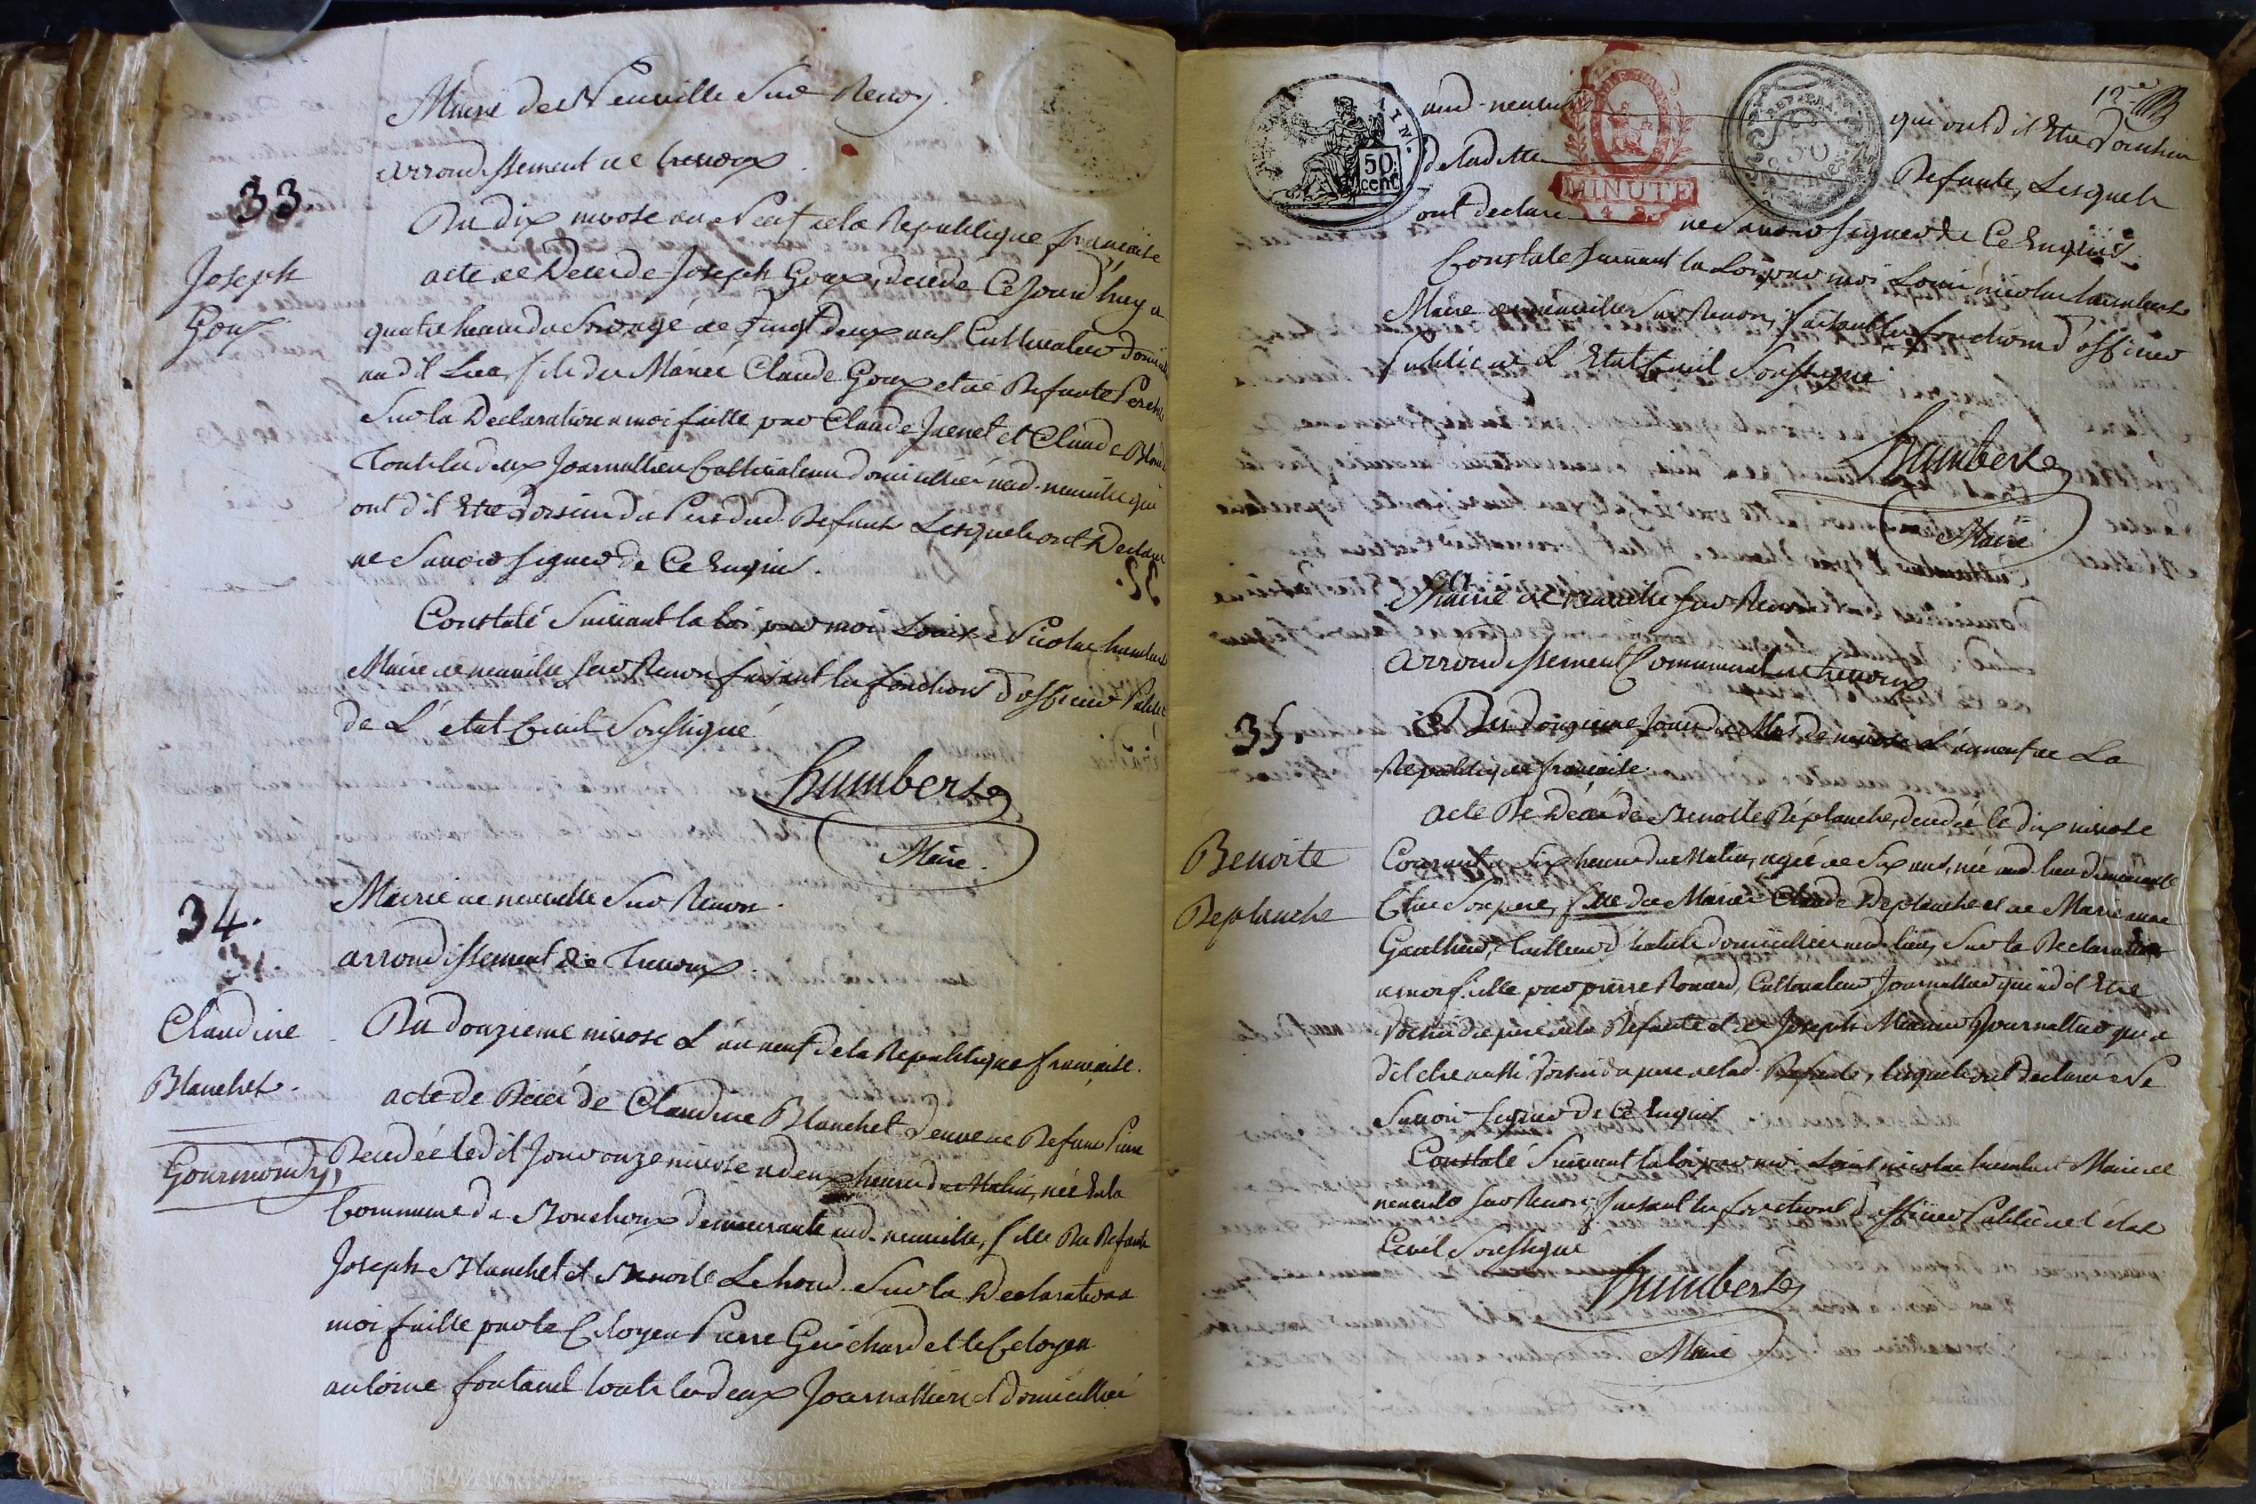 Mairie de Neuville Sur Renon.
arrondissement de trevoux.
33
Joseph
Goux
Du dix nivose an Neuf de la Republique française
acte de Deces de Joseph Goux, decede Ce Jourd'huy a
quatre heures du Soir agé de Vingt deux ans Cultivateur domicilié
aud it Lieu, fils de Mariés Claude Goux et de Defunte
Sur la Declaration a moi faitte par Claude Jaenet et Claude
touts les deux Journalliers Cultivateurs domicilliés aud. neuville qui
ont dit Etre Voisins du Pere dud. Defunt Lesquels ont Declaré
ne Savoir Signer de Ce Enquis.
Constaté Suivant la loi par moi Louis Nicolas humbert
Maire de neuville sur Renon faisant les fonctions d'officier Public
de L'état Civil Soussigné
humbert
Maire.
34.
Claudine
Blanchet.
Gourmondy,
Mairie de neuville Sur Renon.
arrondissement de Trevoux.
Du douzieme nivose L'an neuf de la Republique française.
acte de Décés de Claudine Blanchet Veuve de Defunt Pierre
Decedée ledit Jour onze nivose a deux heures du Matin, née En la
Commune de Bouchoux demeurante aud. neuville, fille Du Defunt
Joseph Blanchet et Benoite Lehoud. Sur la Declaration a
moi faitte par le Citoyen Pierre Guichard et le Citoyen
antoine fontanel touts les deux Journalliers et domicilliés
12e
50 cent
MINUTE
aud. neuville qui ont dit Etre Voisins
de laditte Defunte, Lesquels
ont declaré ne Savoir Signer de Ce Enquis.
Constaté Suivant la Loi par moi Louis nicolas humbert
Maire de neuville Sur Renon, faisant les fonctions d'officier
Public de L'Etat Civil Soussigné
humbert
Maire
Mairie de neuville sur Renon
arrondissement Communal de trevoux
35.
Du douzieme Jour du Mois de nivose L'an neuf de La
Republique française
Benoite
Deplanche
acte De Décés de Benoite Déplanche, decedée le dix nivose
Courant a Six heures du Matin, agée de Six ans, née aud. lieu demeurante
Chez Son pere, fille de Mariés Claude Deplanche et de Marie anne
Gauthier, tailleur d'habits domicilliés aud. lieu, Sur la Declaration
a moi faitte par pierre Renard, Cultivateur Journallier qui a dit Etre
Voisin du pere de la Defunte et de Joseph Journallier qui a
dit etre aussi Voisin du pere de lad. Defunte, lesquels ont declaré Ne
Savoir signer de Ce Enquis
Constaté Suivant la loi par moi Louis nicolas humbert Maire de
neuville sur Renon, faisant les fonctions d'officier Public de l'état
Civil Soussigné
humbert
Maire